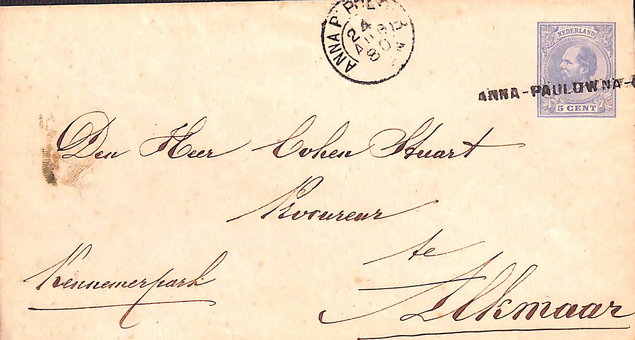 NEDERLAND
5 CENT
ANNA-PAULOWNA-
ANNA P
24
80
Den Heer Cohen Stuart
Procureur
te
Kennemerpark
Alkmaar